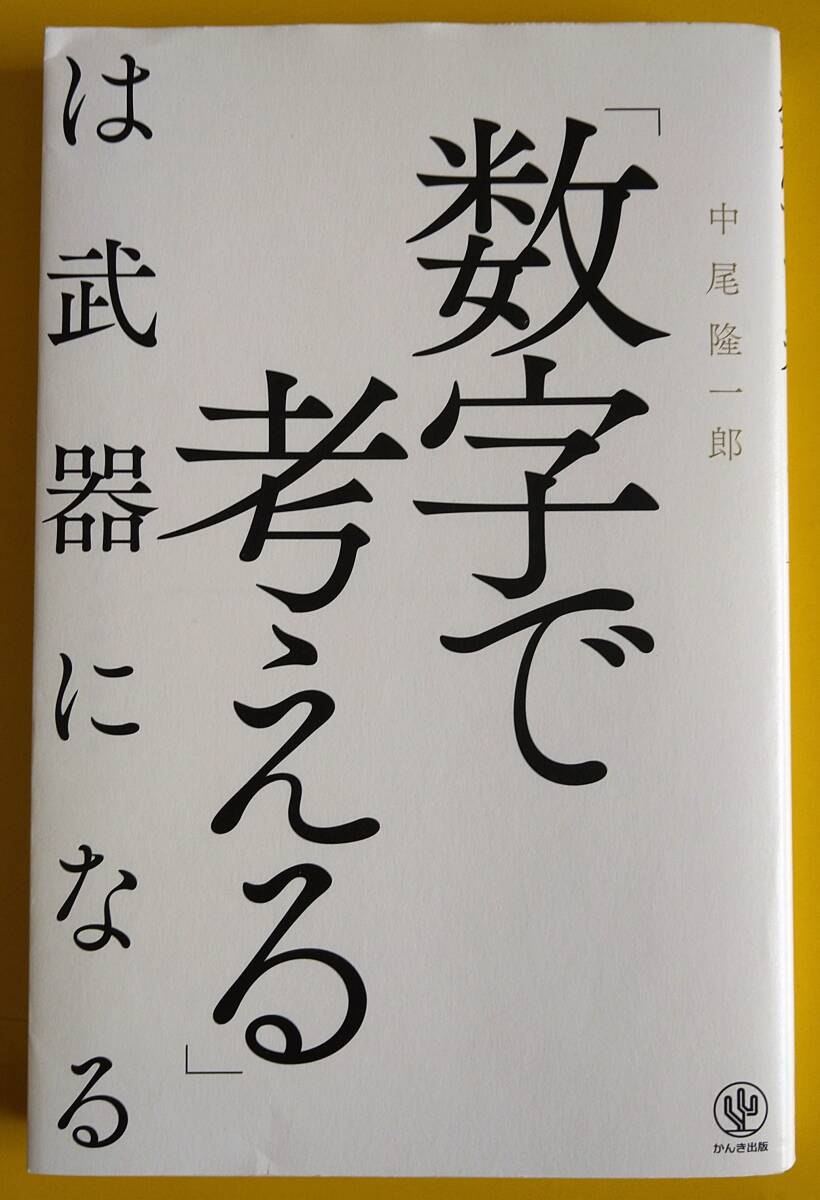 中尾隆一郎
「数字で
考える」
は武器になる
かんき出版